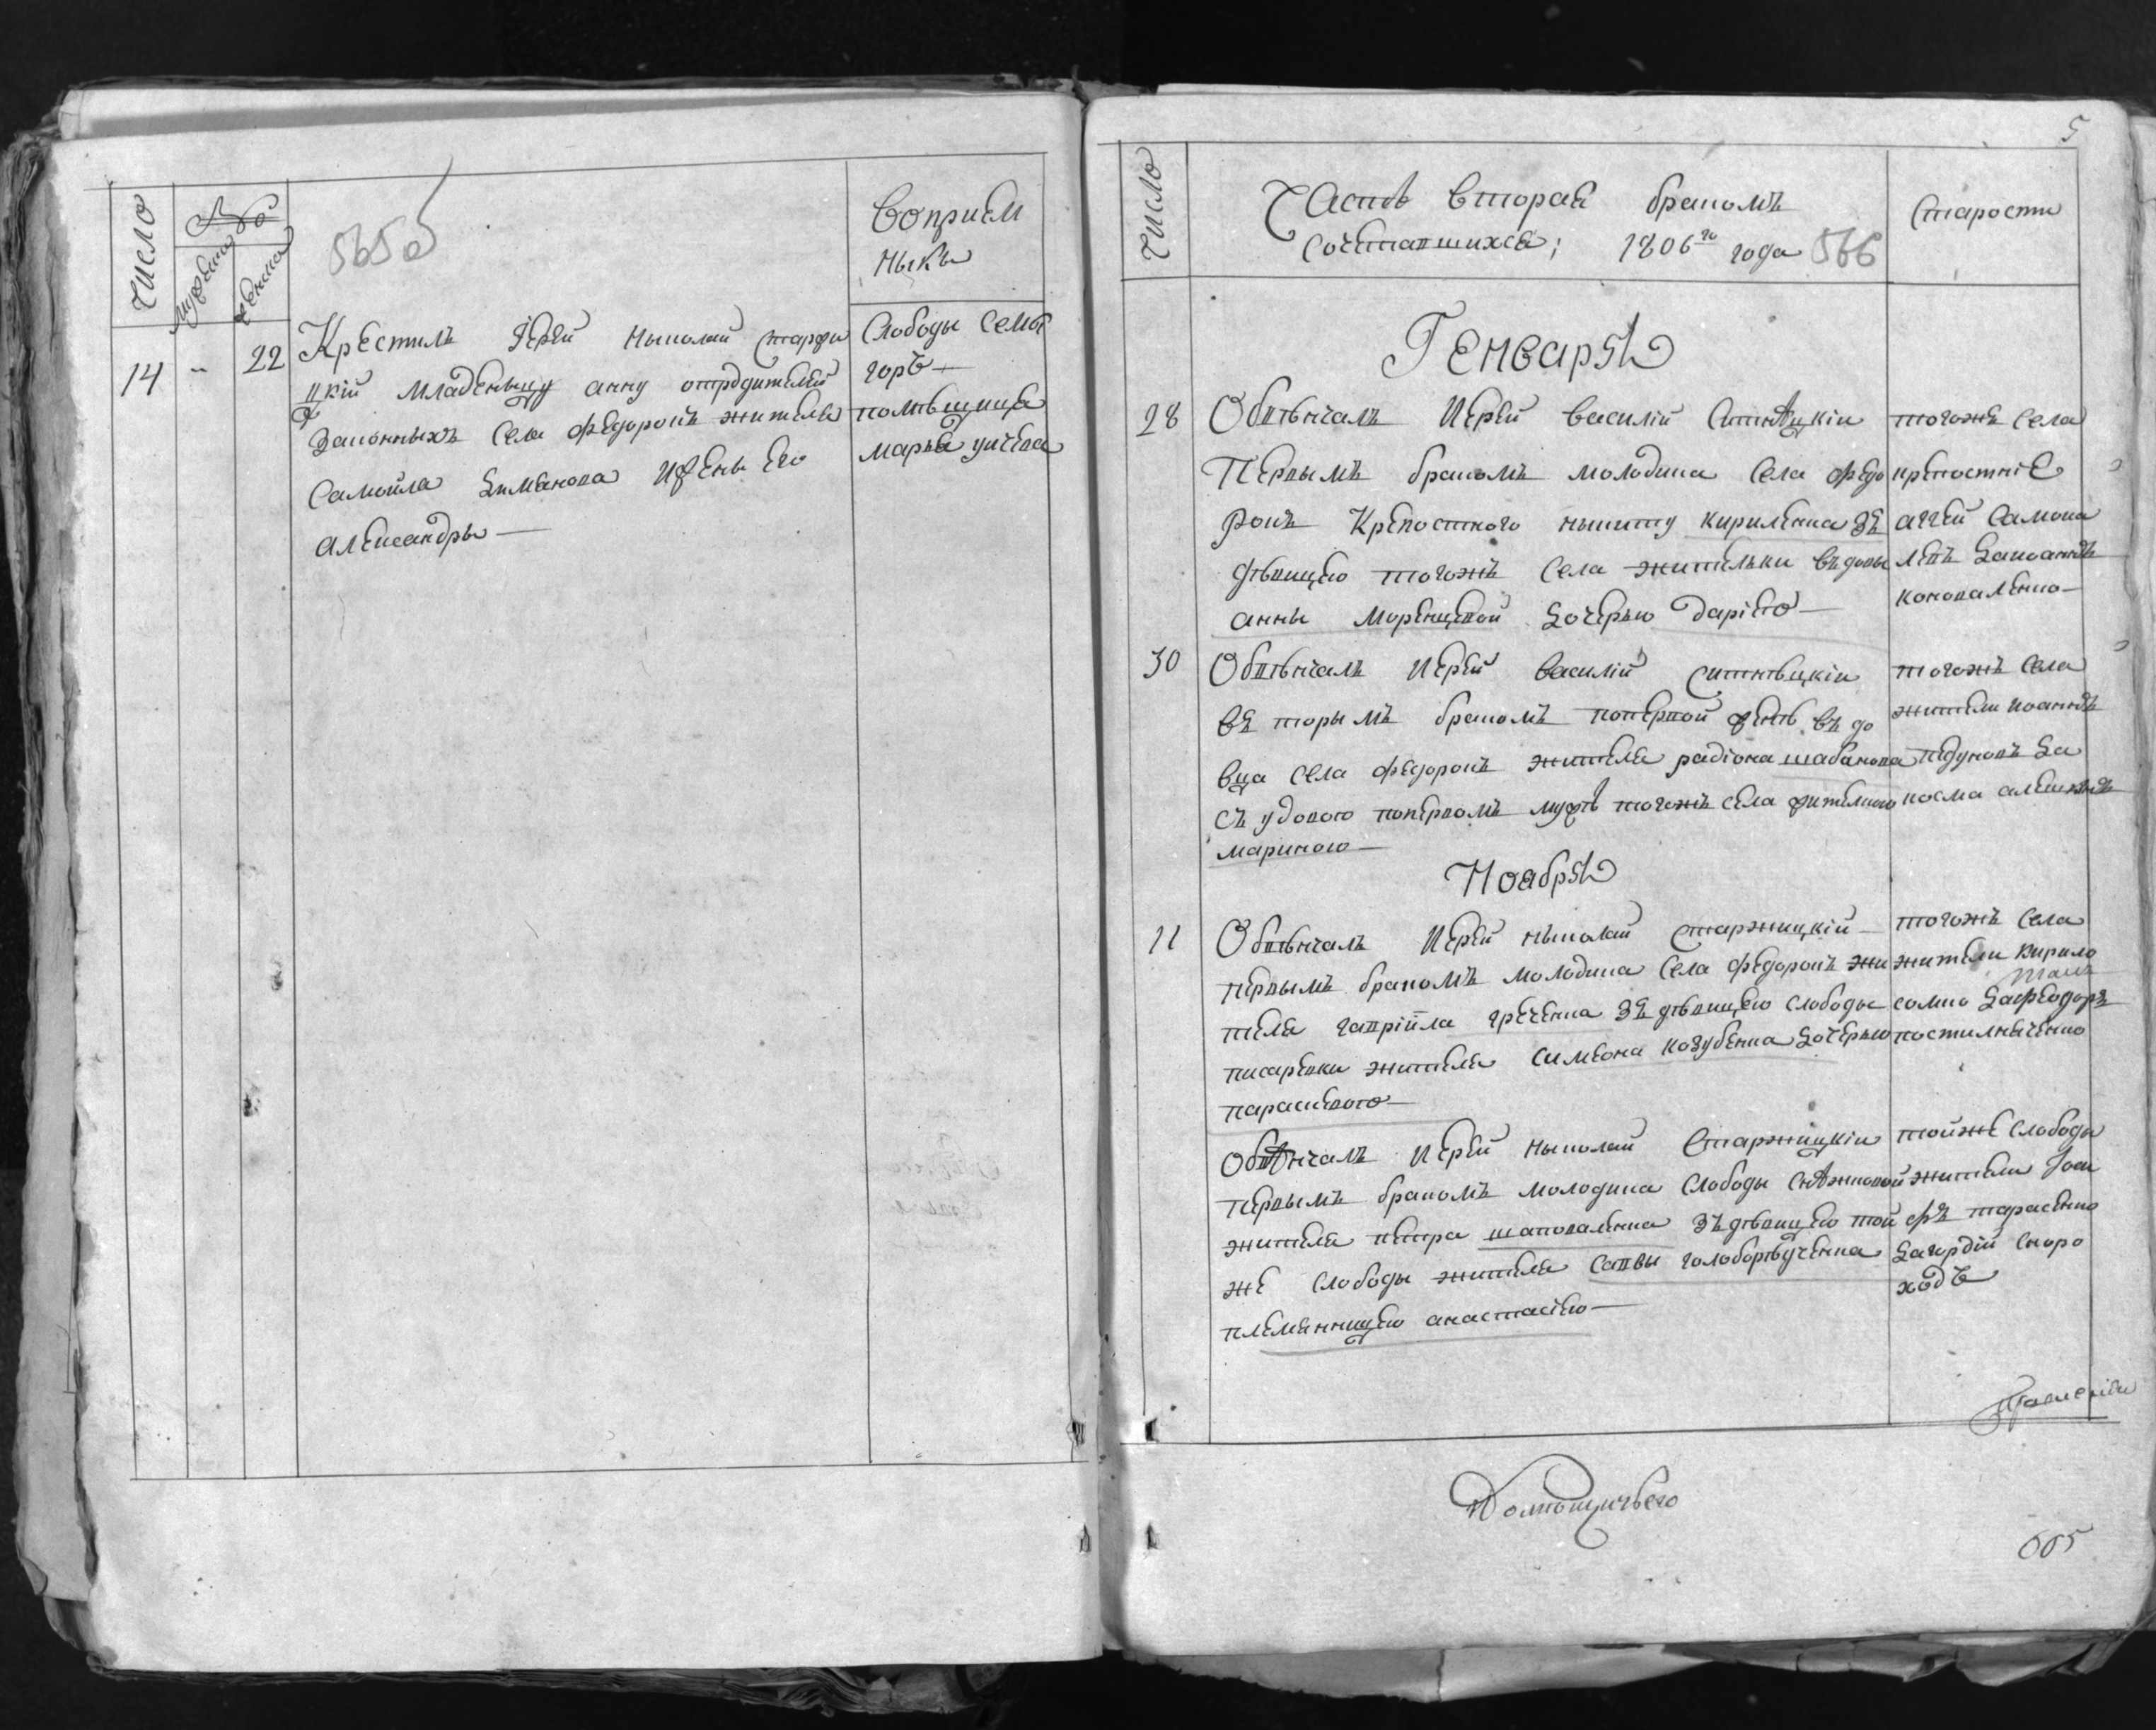 Число
№
мужеска
женска
565об
Воприем
ныкы
14 " 22
Крестилъ Іерей Ныколай Старжи
цкій младеньцу анну отродителей
Законныхъ Села федоровъ жителя
Самойла Климанова Ижены Его
Александры
Слободы Семы
горъ
помъщица
марья
5
Число
Часть вторая бракомъ
Сочетавшихся; 1806го года 566
Старосты
Генваря
28
Обвѣнчалъ Иерей Василій Ситнѣцкій
Первымъ бракомъ молодика Села федо
ровъ Крепостного ныкиту кириленка зъ
дѣвицею тогожъ Села жительки въдовы
анны моренцевой дочерью даріею
тогожъ Села
крепостніе
аггей Самока
левъ даиоаннъ
коноваленко
30
Обвѣнчалъ Иерей Василій Ситнѣцкій
въ торымъ бракомъ поперьвой женѣ въ до
вца Села федоровъ жителя радіона шабанова
съ удовою поперьвомъ мужѣ тогожъ села жителкою
мариною
тогожъ Села
жители иоаннъ
педуновъ да
косма
Ноября
11
Обвѣнчалъ Иерей ныколай старжицкій
первымъ бракомъ молодика Села федоровъ жи
теля гавріила греченка зъ дѣвицею слободы
писаревки жителя симеона козубенка дочерью
параскевою
тогожъ Села
жители кирило
сомко дафеодоръ
постилныченко
Обвѣнчалъ Иерей ныколай Старжицкій
первымъ бракомъ молодика Слободы снѣжковой
жителя петра шаповаленка зъ дѣвицею той
же Слободы жителя саввы голобородченка
племянницею анастасіею
тойже Слободы
жители Іоси
фъ тарасенко
дагордій скоро
ходъ
565